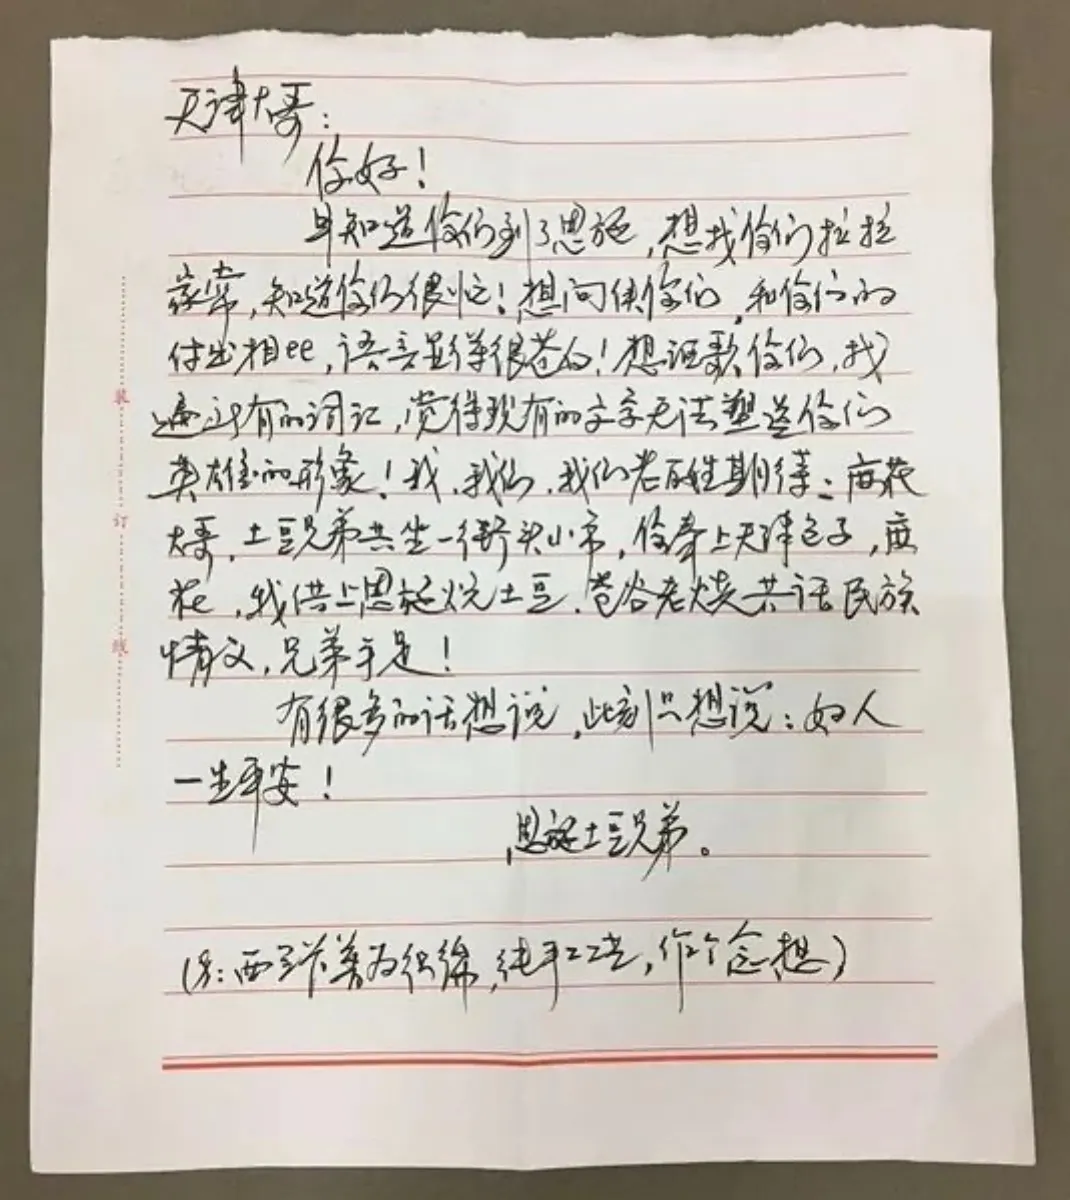 天津大哥:
你好!
早知道你们到了恩施,想找你们拉拉
家常,知道你们很忙!想问候你们,和你们的
付出相比,语言显得很苍白!想讴歌你们,找
遍所有的词汇,觉得现有的文字无法塑造你们
英雄的形象!我、我们、我们老百姓期待:麻花
大哥、土豆兄弟共坐一街头小市,你奉上天津包子,麻
花,我供上恩施炕土豆、苞谷老烧共话民族
情义,兄弟手足!
有很多的话想说,此刻只想说:好人
一生平安!
恩施土豆兄弟。
(另:西兰卡普为织锦,纯手工艺,作个念想)
装
订
线